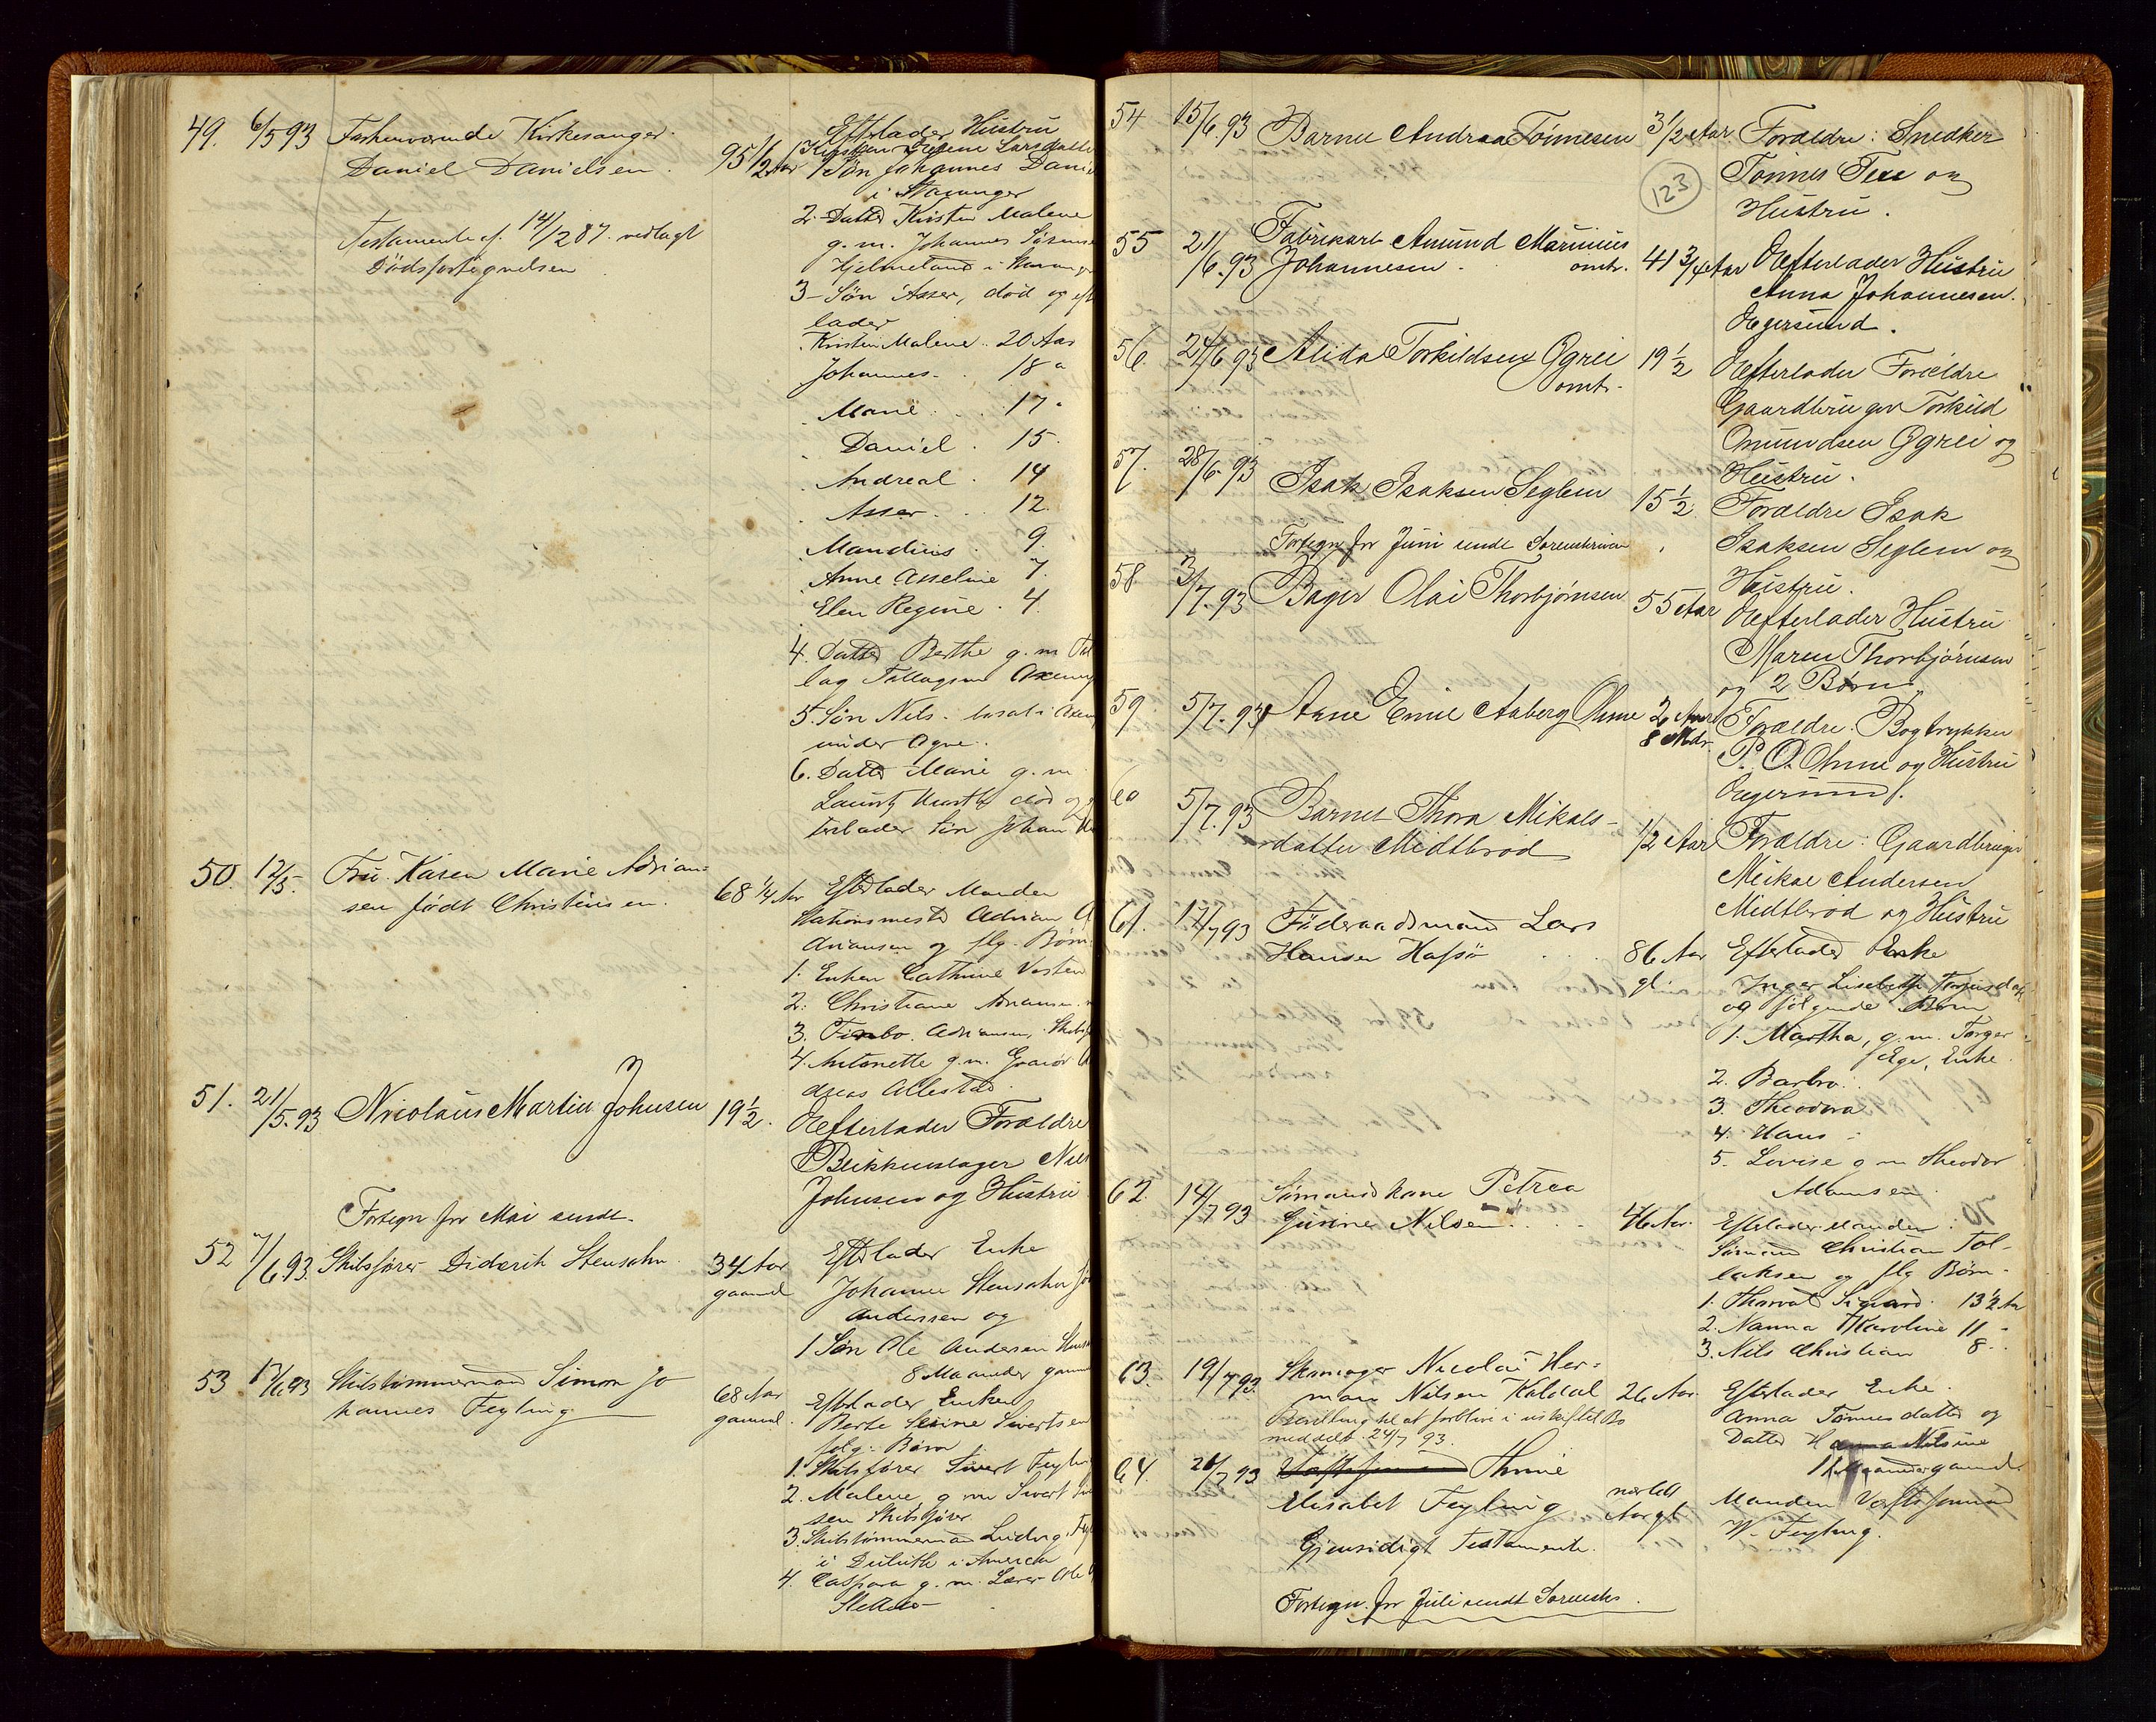 49. 6/5 93 Forhenværende Kirkesanger
Daniel Danielsen. 95 1/2 Aar
Testamente af 14/2 87. vedlagt
Dødsfortegnelsen
Efterlader Hustru
Larsdatter
1 Søn Johannes Dani
i Stavanger
2. Datter Kirsten Malene
g. m. Johannes
Hjelmeland i
3 Søn Asser, død og eft
lader
Kirsten Malene 20 Aar
Johannes. 18 "
Marie. 17 "
Daniel. 15.
Andreal. 14
Asser. 12.
Mandius. 9.
Anne Asseline 7.
Elen Regine. 4.
4. Datter Berthe g. m. Tol
lag Tollagsen
5. Søn Nils. bosat i
under Ogne.
6. Datter Marie g. m.
død og
terlader Søn Johan
50. 12/5. Fru Karen Marie Adrian-
sen født Christensen. 68 1/4 Aar
Efterlader Manden
Stationsmester Adrian A
driansen og flg. Børn
1. Enken Cathrine
2. Christiane
3. Adriansen, Skibsf
4. Antonette g. m.
dreas Allestad.
51. 21/5. 93 Nicolaus Martin Johnsen 19 1/2.
Efterlader Forældre
Blikkenslager Niel
Johnsen og Hustru
Fortegn. for Mai sendt.
52 7/6 93. Skibsfører Diderik Stensohn. 34 Aar
gammel
Efterlader Enke
Johanne Stensohn
Andersen og
1 Søn Ole Andersen
8 Maaneder gamm
53 17/6 93 Skibstømmermand Simon Jo
hannes Feyling 68 Aar
gammel.
Efterlader Enken
Berte Serine Sivertsen
følg. Børn
1. Skibsfører Sivert Feyli
2. Malene g. m. Sivert
sen Skibsfører
3. Skibstømmermand Ludvig Fey
i Duluth i America
4. Caspara g. m. Lærer Ole
54 15/6. 93 Barnet Andrea Tønnesen 3 1/2 Aar Forældre: Snedker
Tønnes og
Hustru.
123
55 21/6. 93 Fabrikarb. Amund Marinius
Johannesen. omtr. 41 3/4 Aar Efterlader Hustru
Anna Johannesen.
Egersund.
56. 24/6 93 Alida Torkildsen Ogrei
omtr. 19 1/2 Efterlader Forældre
Gaardbruger Torkild
Omundsen Ogrei og
Hustru.
57. 28/6. 93 Isak Isaksen Seglem 15 1/2. Forældre Isak
Isaksen Seglem og
Hustru.
Fortegn. for Juni sendt Sorenskriver
58. 3/7. 93 Bager Olai Thorbjørnsen 55 Aar Efterlader Hustru
Maren Thorbjørnsen
og 2 Børn.
59. 5/7. 93 Arne Emil Aaberg Ohme 2 Aar
8 Mdr. Forældre: Bogtrykker
P. O. Ohme og Hustru
Egersund.
60 5/7. 93 Barnet Thora Mikals-
datter Midtbrød 1/2 Aar Forældre: Gaardbruger
Mikal Andersen
Midtbrød og Hustru
61. 12/7 93 Føderaadsmand Lars
Hansen Hafsø 86 Aar
gl. Efterlader Enke
Inger Lisebeth
og følgende Børn
1. Martha, g. m. Torger
Ege, Enke.
2. Barbro.
3. Theodora
4. Hans
5. Lovise g m Theodor
Adamsen
62. 14/7 93 Sømandskone Petrea
Gurine Nilsen. 46 Aar. Efterlader Manden:
Sømand Christian Tol-
laksen og flg Børn.
1. Thorval Sigvard. 13 1/2 Aar
2. Nanna Karoline 11 "
3. Nils Christian 8 "
63. 19/7 93. Skomager Nicolai Her-
man Nilsen Kaldal 26 Aar. Efterlader Enke.
Anna Tønnesdatter og
Datter Nilsine
Maaneder gammel.
Bevilling til at forblive i uskiftet Bo
meddelt 24/7 93.
64. 26/7 93 Thrine
Elisabet Feyling Aar gl Manden
W. Feyling.
Gjensidigt Testamente.
Fortegn. for Juli sendt Sorenskr.